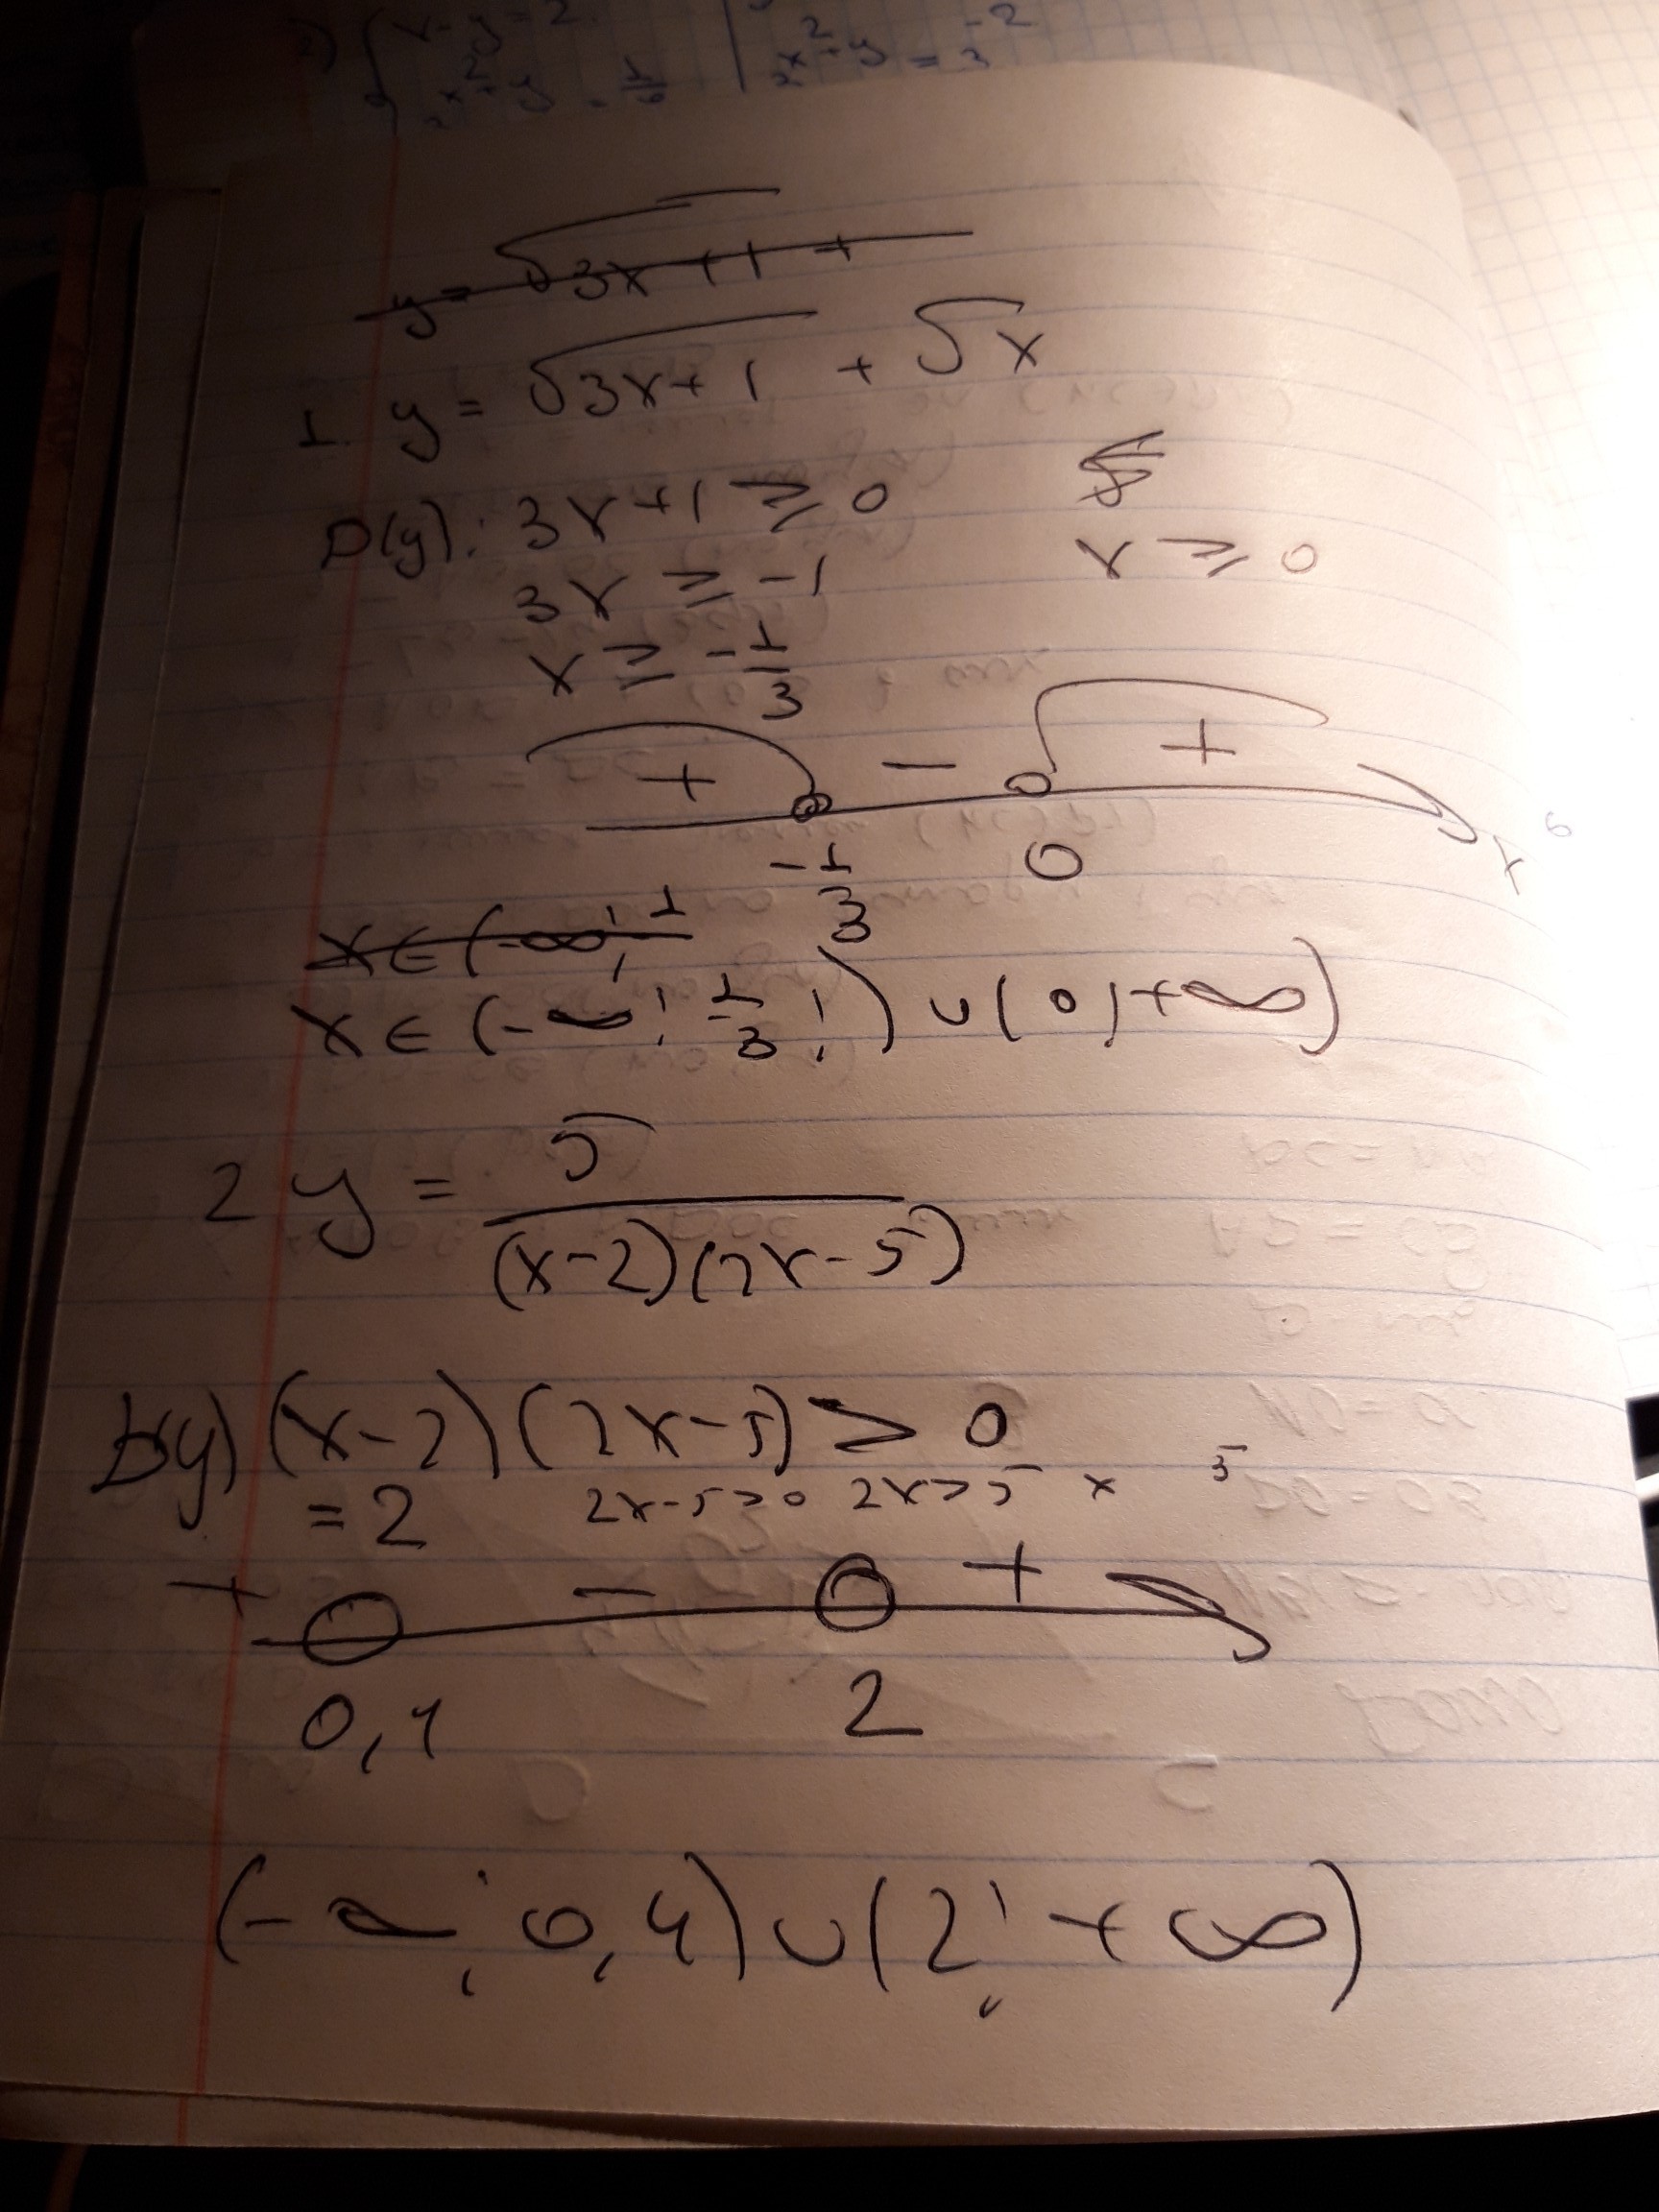 x - y = 2
2) { x² + y = 1/6 | 2^x²+y = 3^-2
y = √3x + 1 +
1. y = √3x + 1 + √x
D(y): 3x + 1 ⩾ 0
3x ⩾ -1 x ⩾ 0
x ⩾ -1/3
+ - +
-1/3 0 x
x ∈ (-∞; 1
x ∈ (-∞; -1/3;) ∪ (0; +∞)
2 y = 5/((x-2)(2x-5))
D(y) (x-2)(2x-5) > 0
= 2 2x-5>0 2x>5 x 5
+ - +
0,4 2
(-∞; 0,4) ∪ (2; +∞)